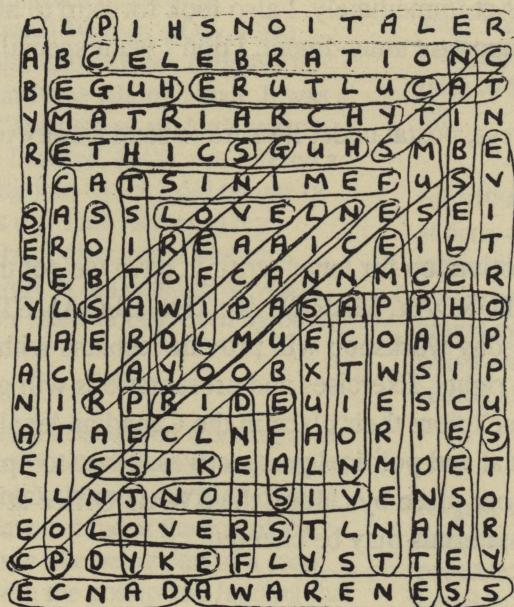 L L P I H S N O I T A L E R
A B C E L E B R A T I O N C
B E G U H E R U T L U C A T
Y M A T R I A R C H Y T I N
R E T H I C S G U H S M B E
I C A T S I N I M E F U S V
S A S S L O V E L N E S E I
E R O I R E A A I C E I L T
S E B T O F C A N N M C C R
Y L S A W I P A S A P P H O
L A E R D L M U E C O A O P
A C L A Y O O B X T W S I P
N I R P R I D E U I E S C U
A T A E C L N F A O R I E S
E I S S I K E A L N M O E T
L L N J N O I S I V E N S O
E O L O V E R S T L N A N R
C P D Y K E F L Y S T T E Y
E C N A D A W A R E N E S S